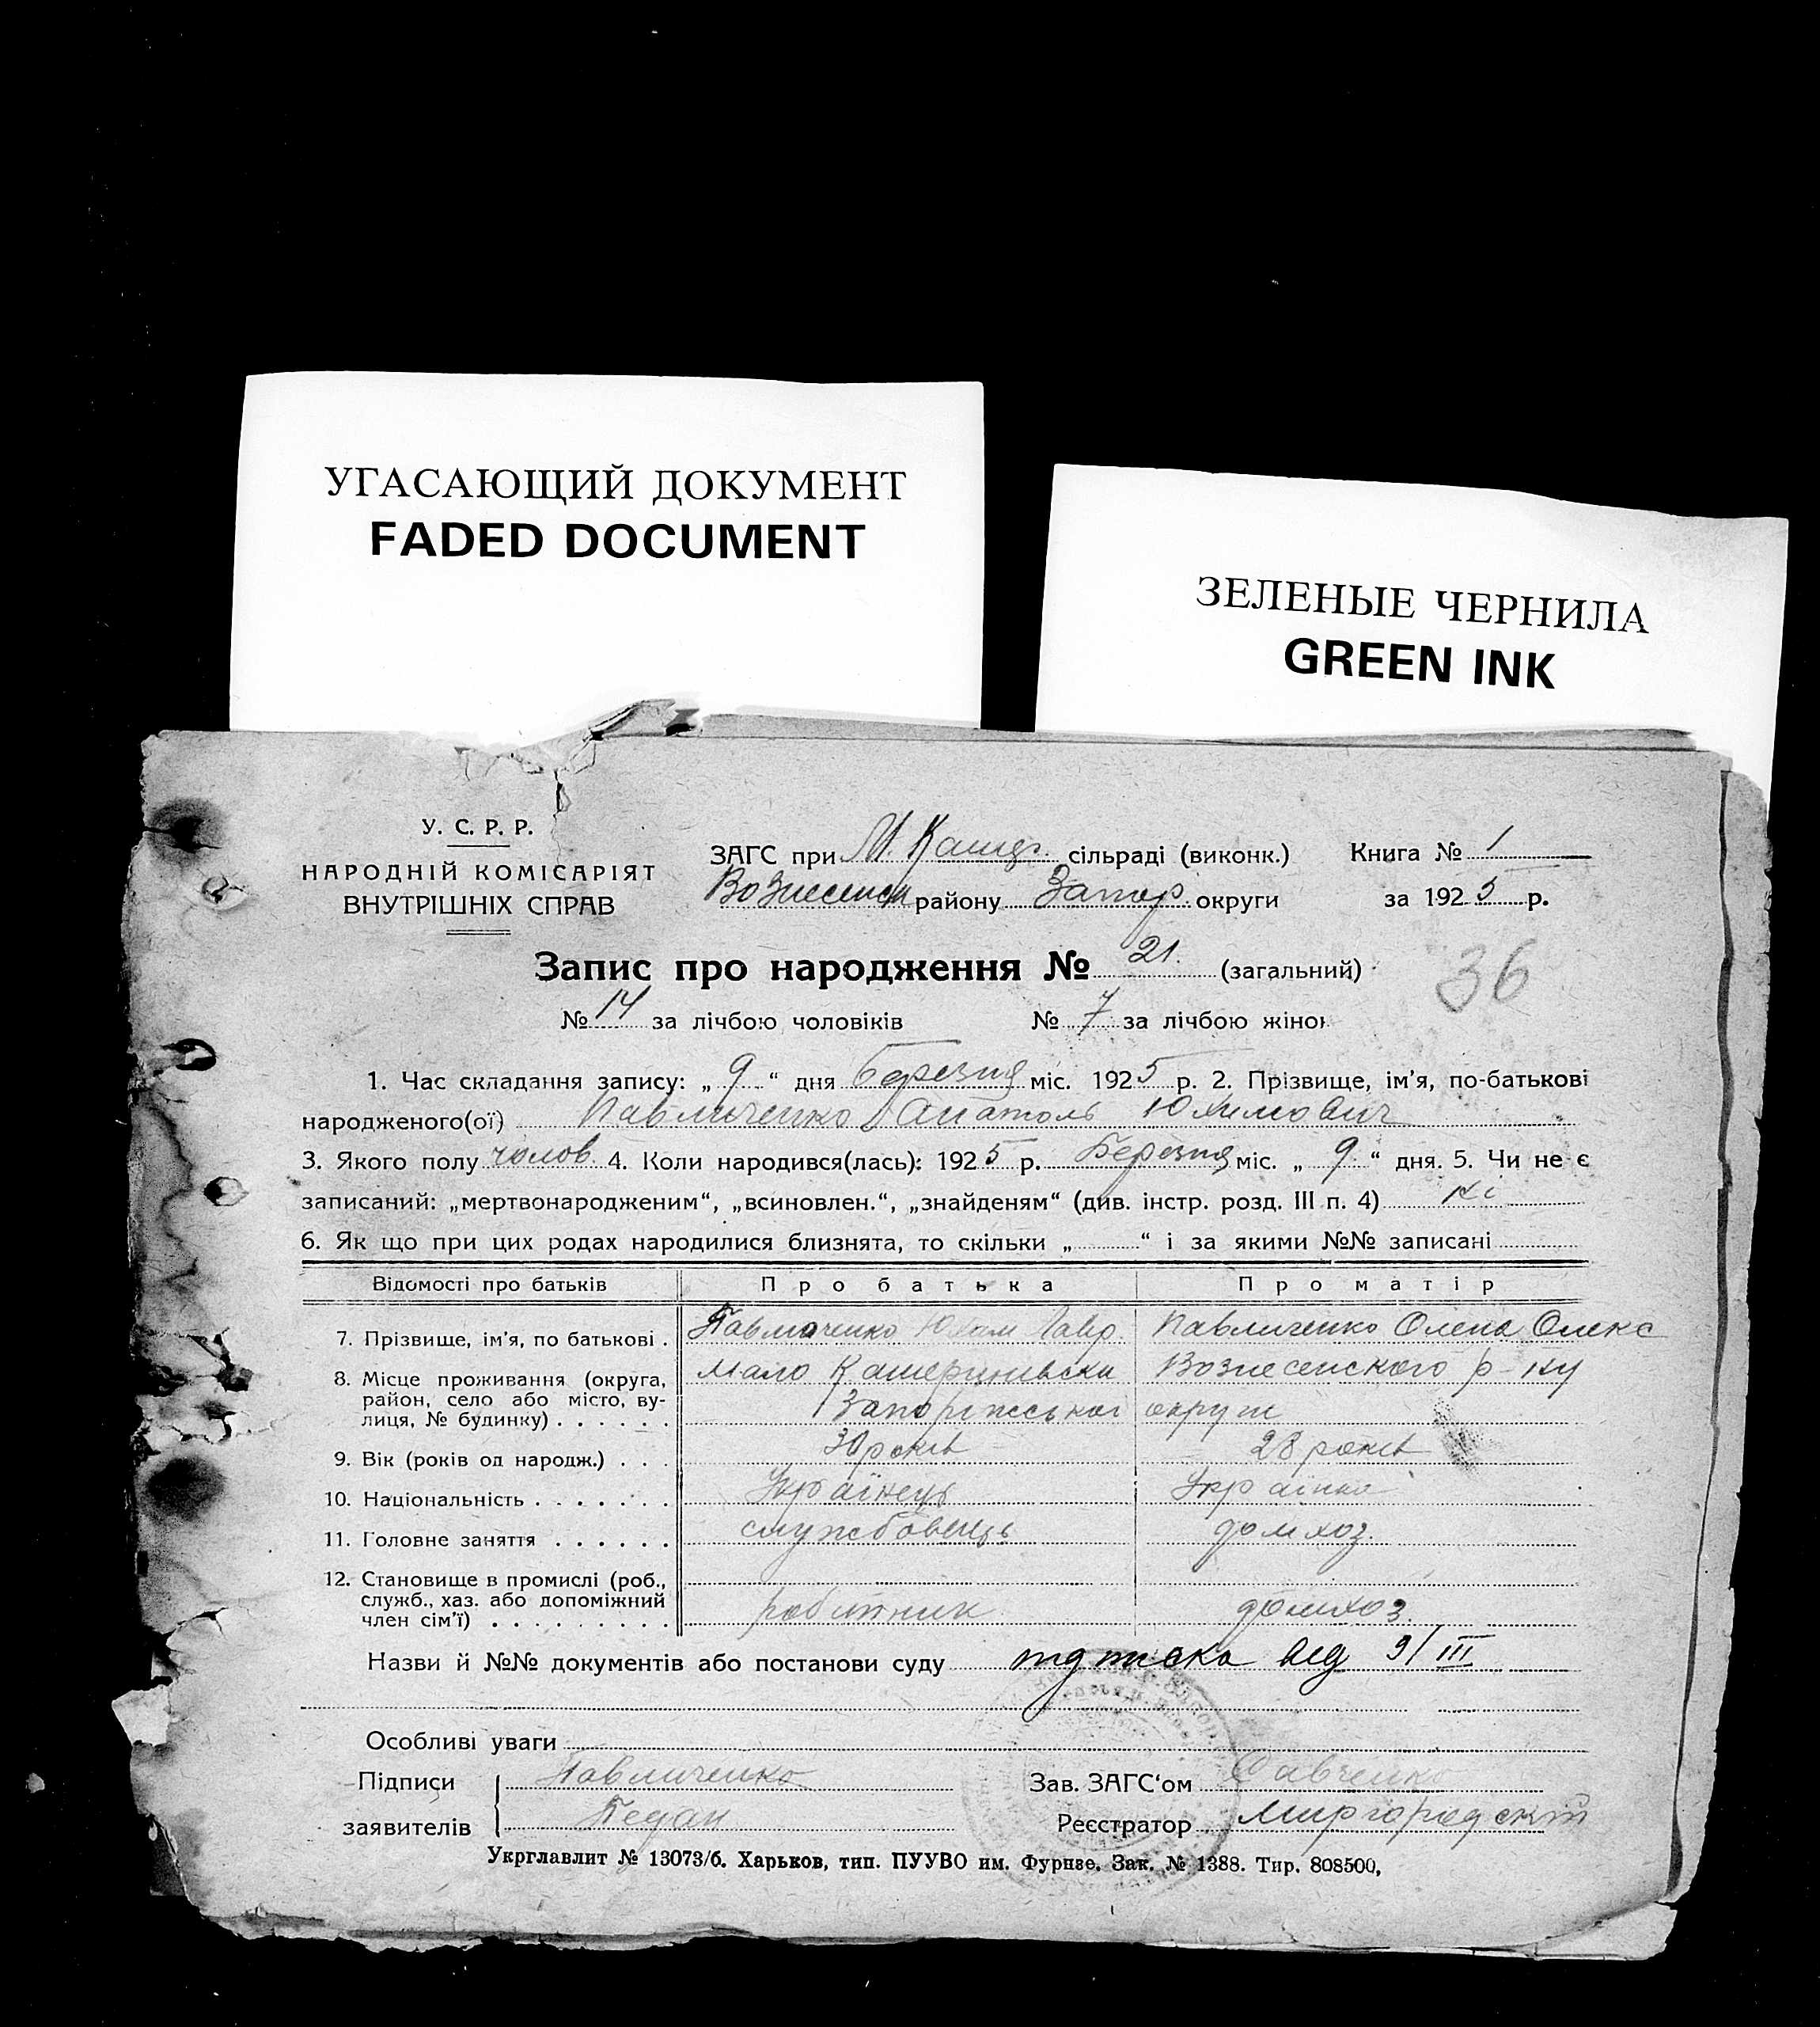 УГАСАЮЩИЙ ДОКУМЕНТ
FADED DOCUMENT
ЗЕЛЕНЫЕ ЧЕРНИЛА
GREEN INK
У. С. Р. Р.
НАРОДНІЙ КОМІСАРІЯТ
ВНУТРІШНІХ СПРАВ
ЗАГС при М. сільраді (виконк.) Книга № 1
Вознесенск району Запор. округи за 1925 р.
Запис про народження № 21. (загальний)
36
№ 14 за лічбою чоловіків № 7 за лічбою жінок
1. Час складання запису: „ 9 “ дня березня міс. 1925 р. 2. Прізвище, ім'я, по-батькові
народженого(ої) Павличенко Анатоль Юхимович
3. Якого полу чолов. 4. Коли народився(лась): 1925 р. Березня міс. „ 9. “ дня. 5. Чи не є
записаний: „мертвонародженим“, „всиновлен.“, „знайденям“ (див. інстр. розд. III п. 4) Ні
6. Як що при цих родах народилися близнята, то скільки „ “ і за якими №№ записані
Відомості про батьків Про батька Про матір
7. Прізвище, ім'я, по батькові . Павличенко Юхим Гавр. Павличенко Олена Олекс
8. Місце проживання (округа, Мало Вознесенского р-ну
район, село або місто, ву-
лиця, № будинку) . . . . . . Запоріжської округи
9. Вік (років од народж.) . . . 30 років 28 років
10. Національність . . . . . . . Українець Українка
11. Головне заняття . . . . . . службовець домхоз.
12. Становище в промислі (роб.,
служб., хаз. або допоміжний
член сім'ї) . . . . . . . . . робитник домхоз.
Назви й №№ документів або постанови суду підписка від 9/III
Особливі уваги
Підписи Павличенко Зав. ЗАГС'ом Савченко
заявителів Педан Реєстратор Миргородский
Укрглавлит № 13073/б. Харьков, тип. ПУУВО им. Фурнзе. Зак. № 1388. Тир. 808500,